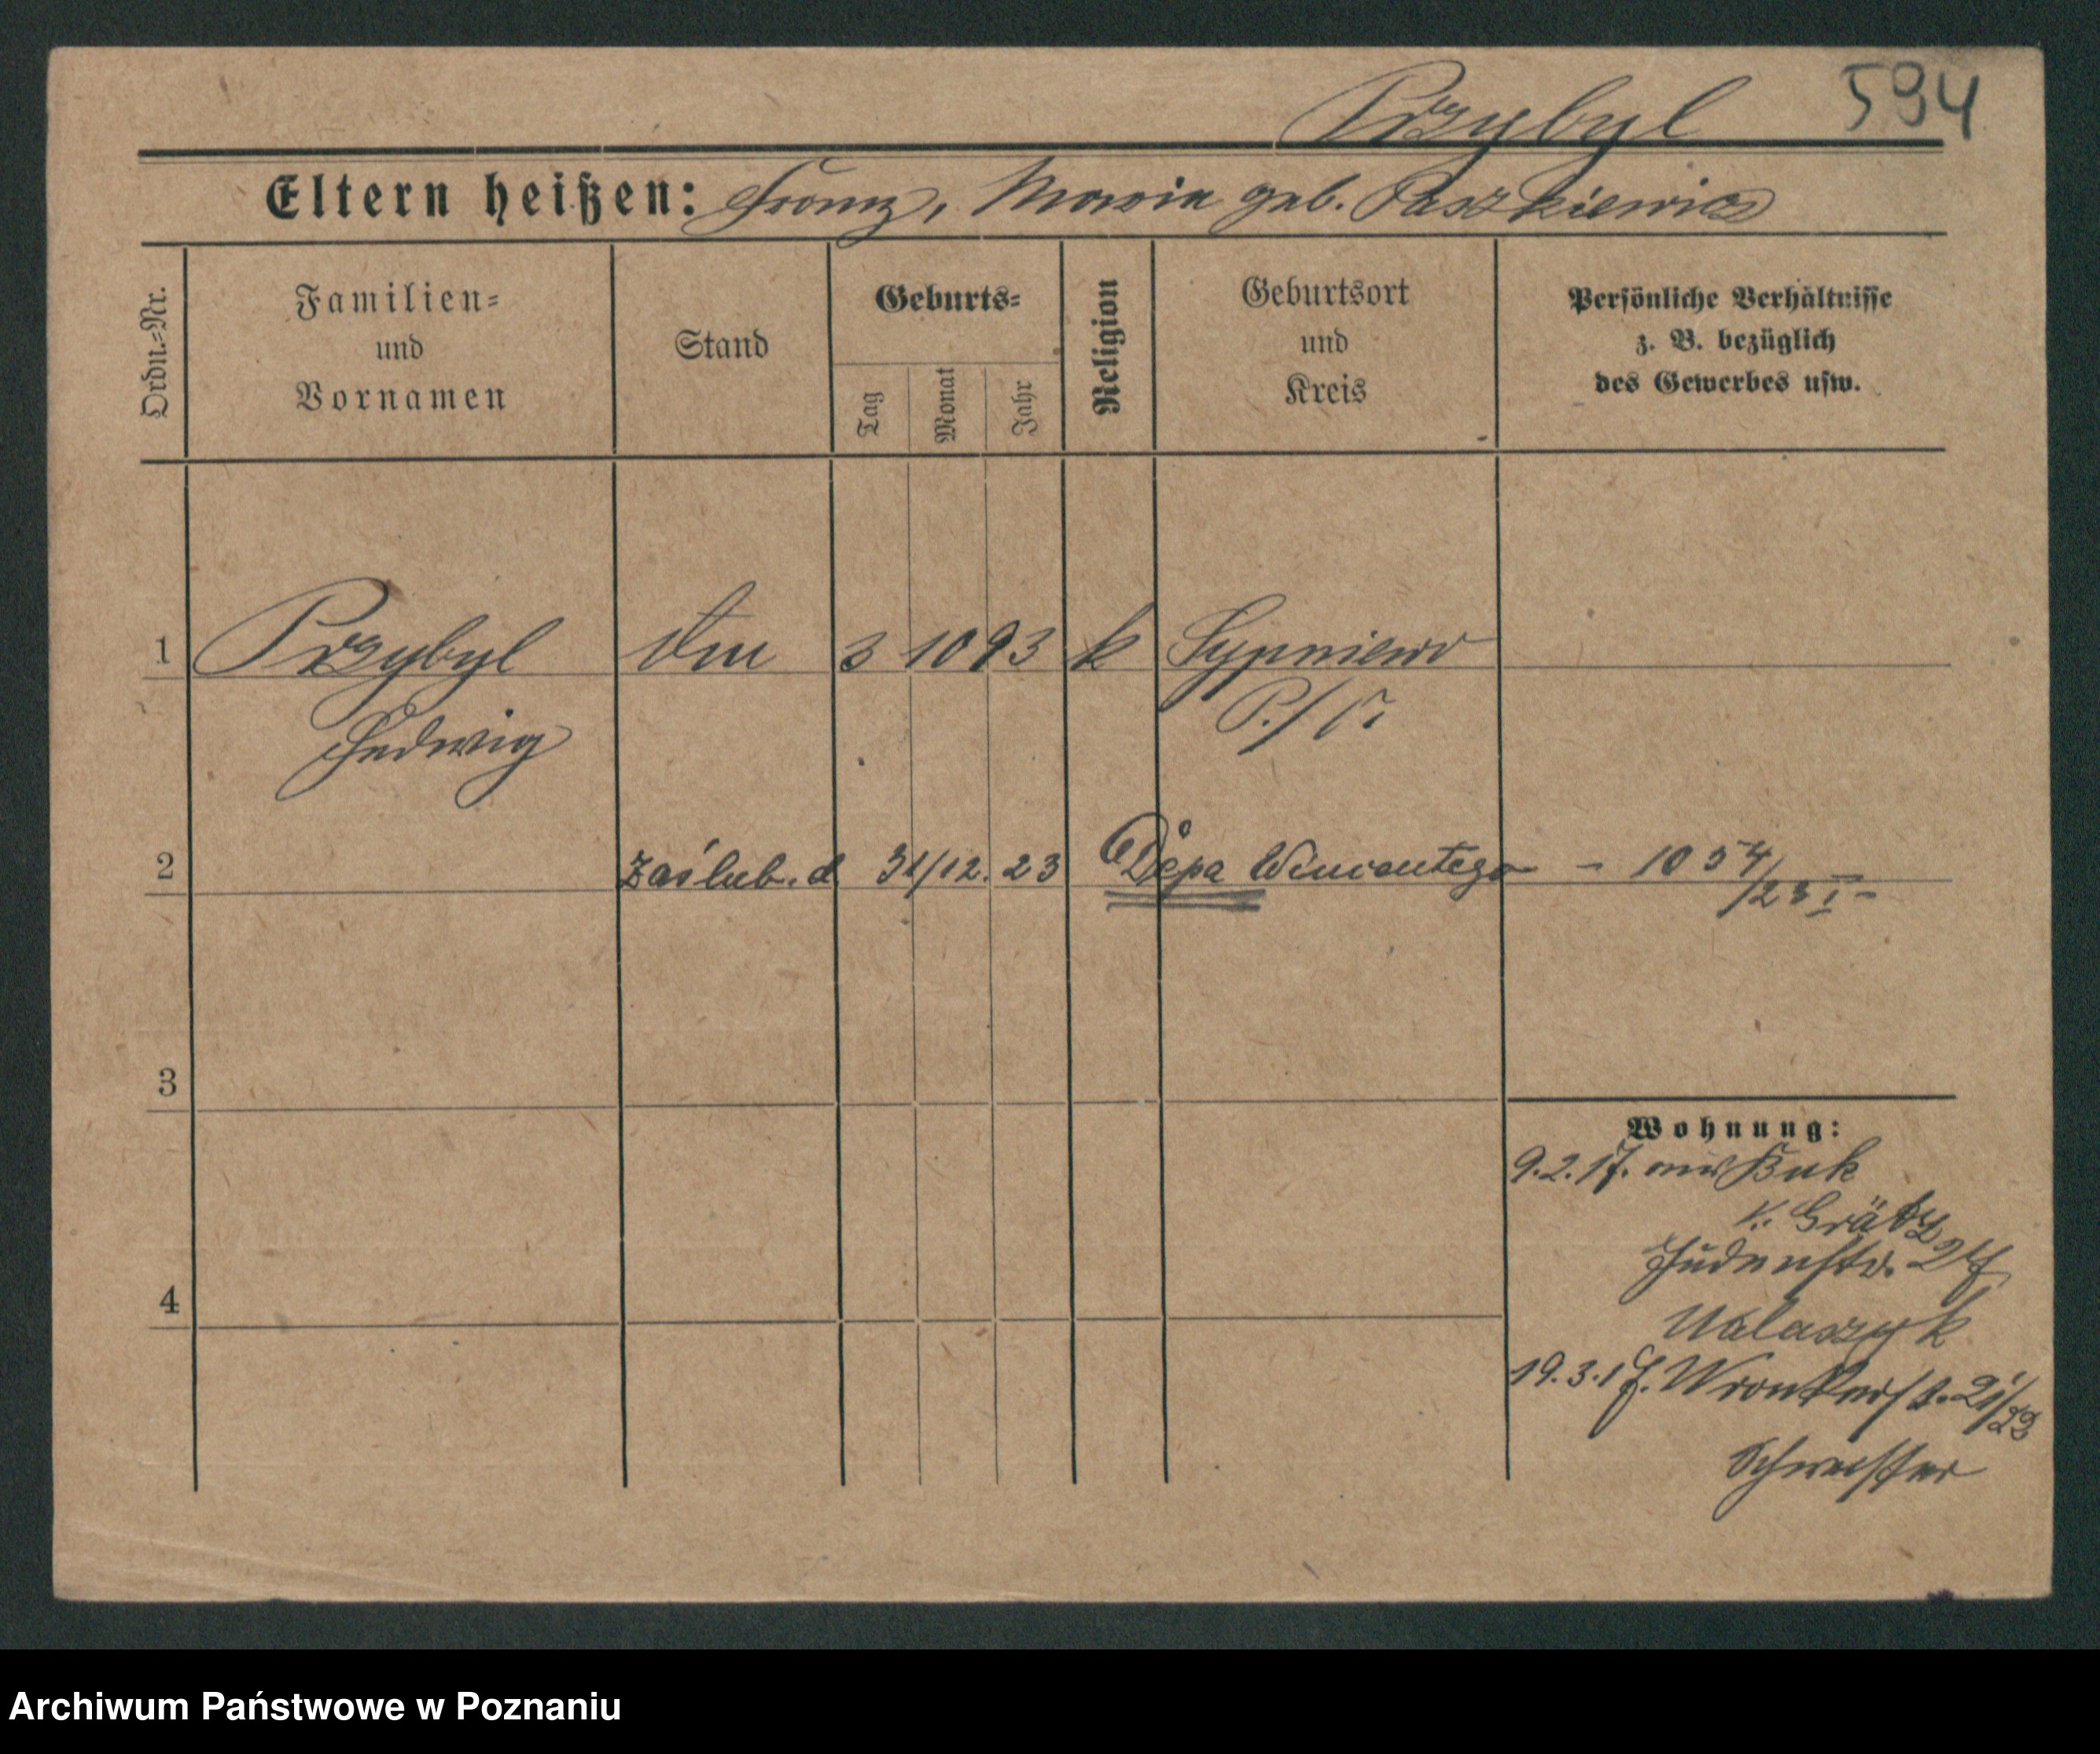 Przybyl 594
Eltern heißen: Franz, Maria geb. Paszkiewicz
Ordn.=Nr.
Familien=
und
Vornamen
Stand
Geburts=
Tag
Monat
Jahr
Religion
Geburtsort
und
Kreis
Persönliche Verhältnisse
z. B. bezüglich
des Gewerbes usw.
1 Przybyl 3 10 93 k Sypniewo
Hedwig
2 zaślub. d 31/12. 23 Depa Wincentego – 1054
/23 I –
3
4
Wohnung:
9.2.17. aus Buk
K. Grätz
Judenstr. 27
Walaszyk
19.3.17. Wronkerst. 21/22
Schwester
Archiwum Państwowe w Poznaniu